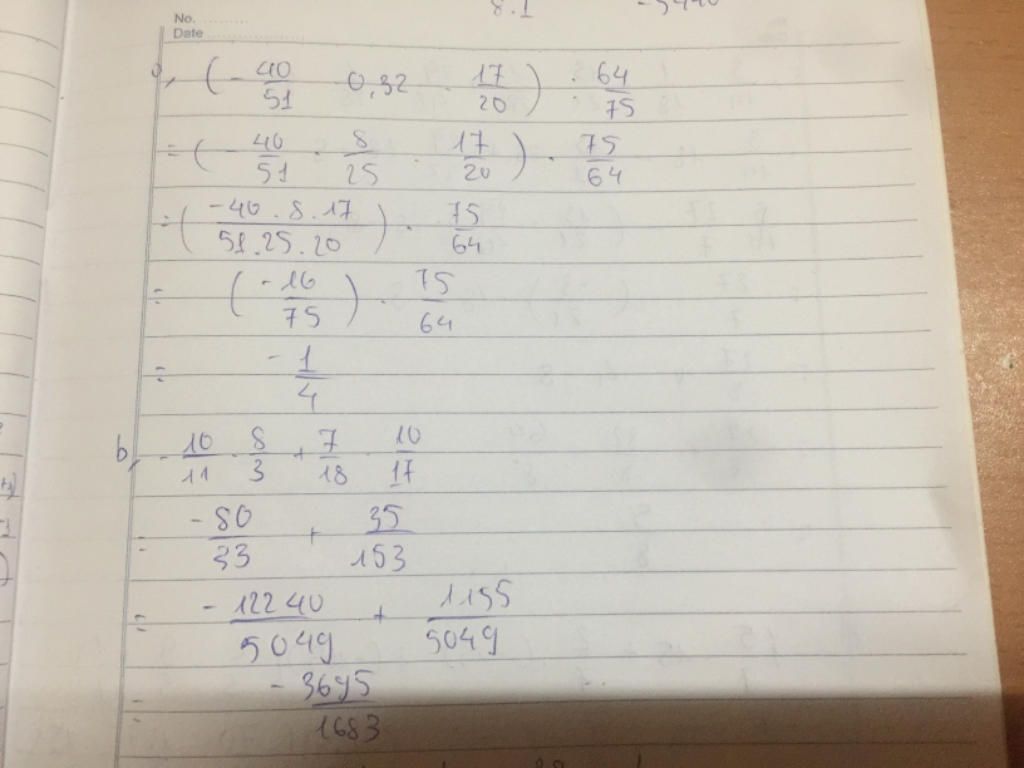 8.1
No. ..........
Date ..........................
a, ( - 40/51 . 0,32 . 17/20 ) : 64/75
= ( - 40/51 . 8/25 . 17/20 ) . 75/64
= ( -40 . 8 . 17 / 51 . 25 . 20 ) . 75/64
= ( -16/75 ) . 75/64
= - 1/4
b, - 10/11 . 8/3 + 7/18 . 10/17
= - 80/33 + 35/153
= - 12240/5049 + 1155/5049
= - 3695/1683